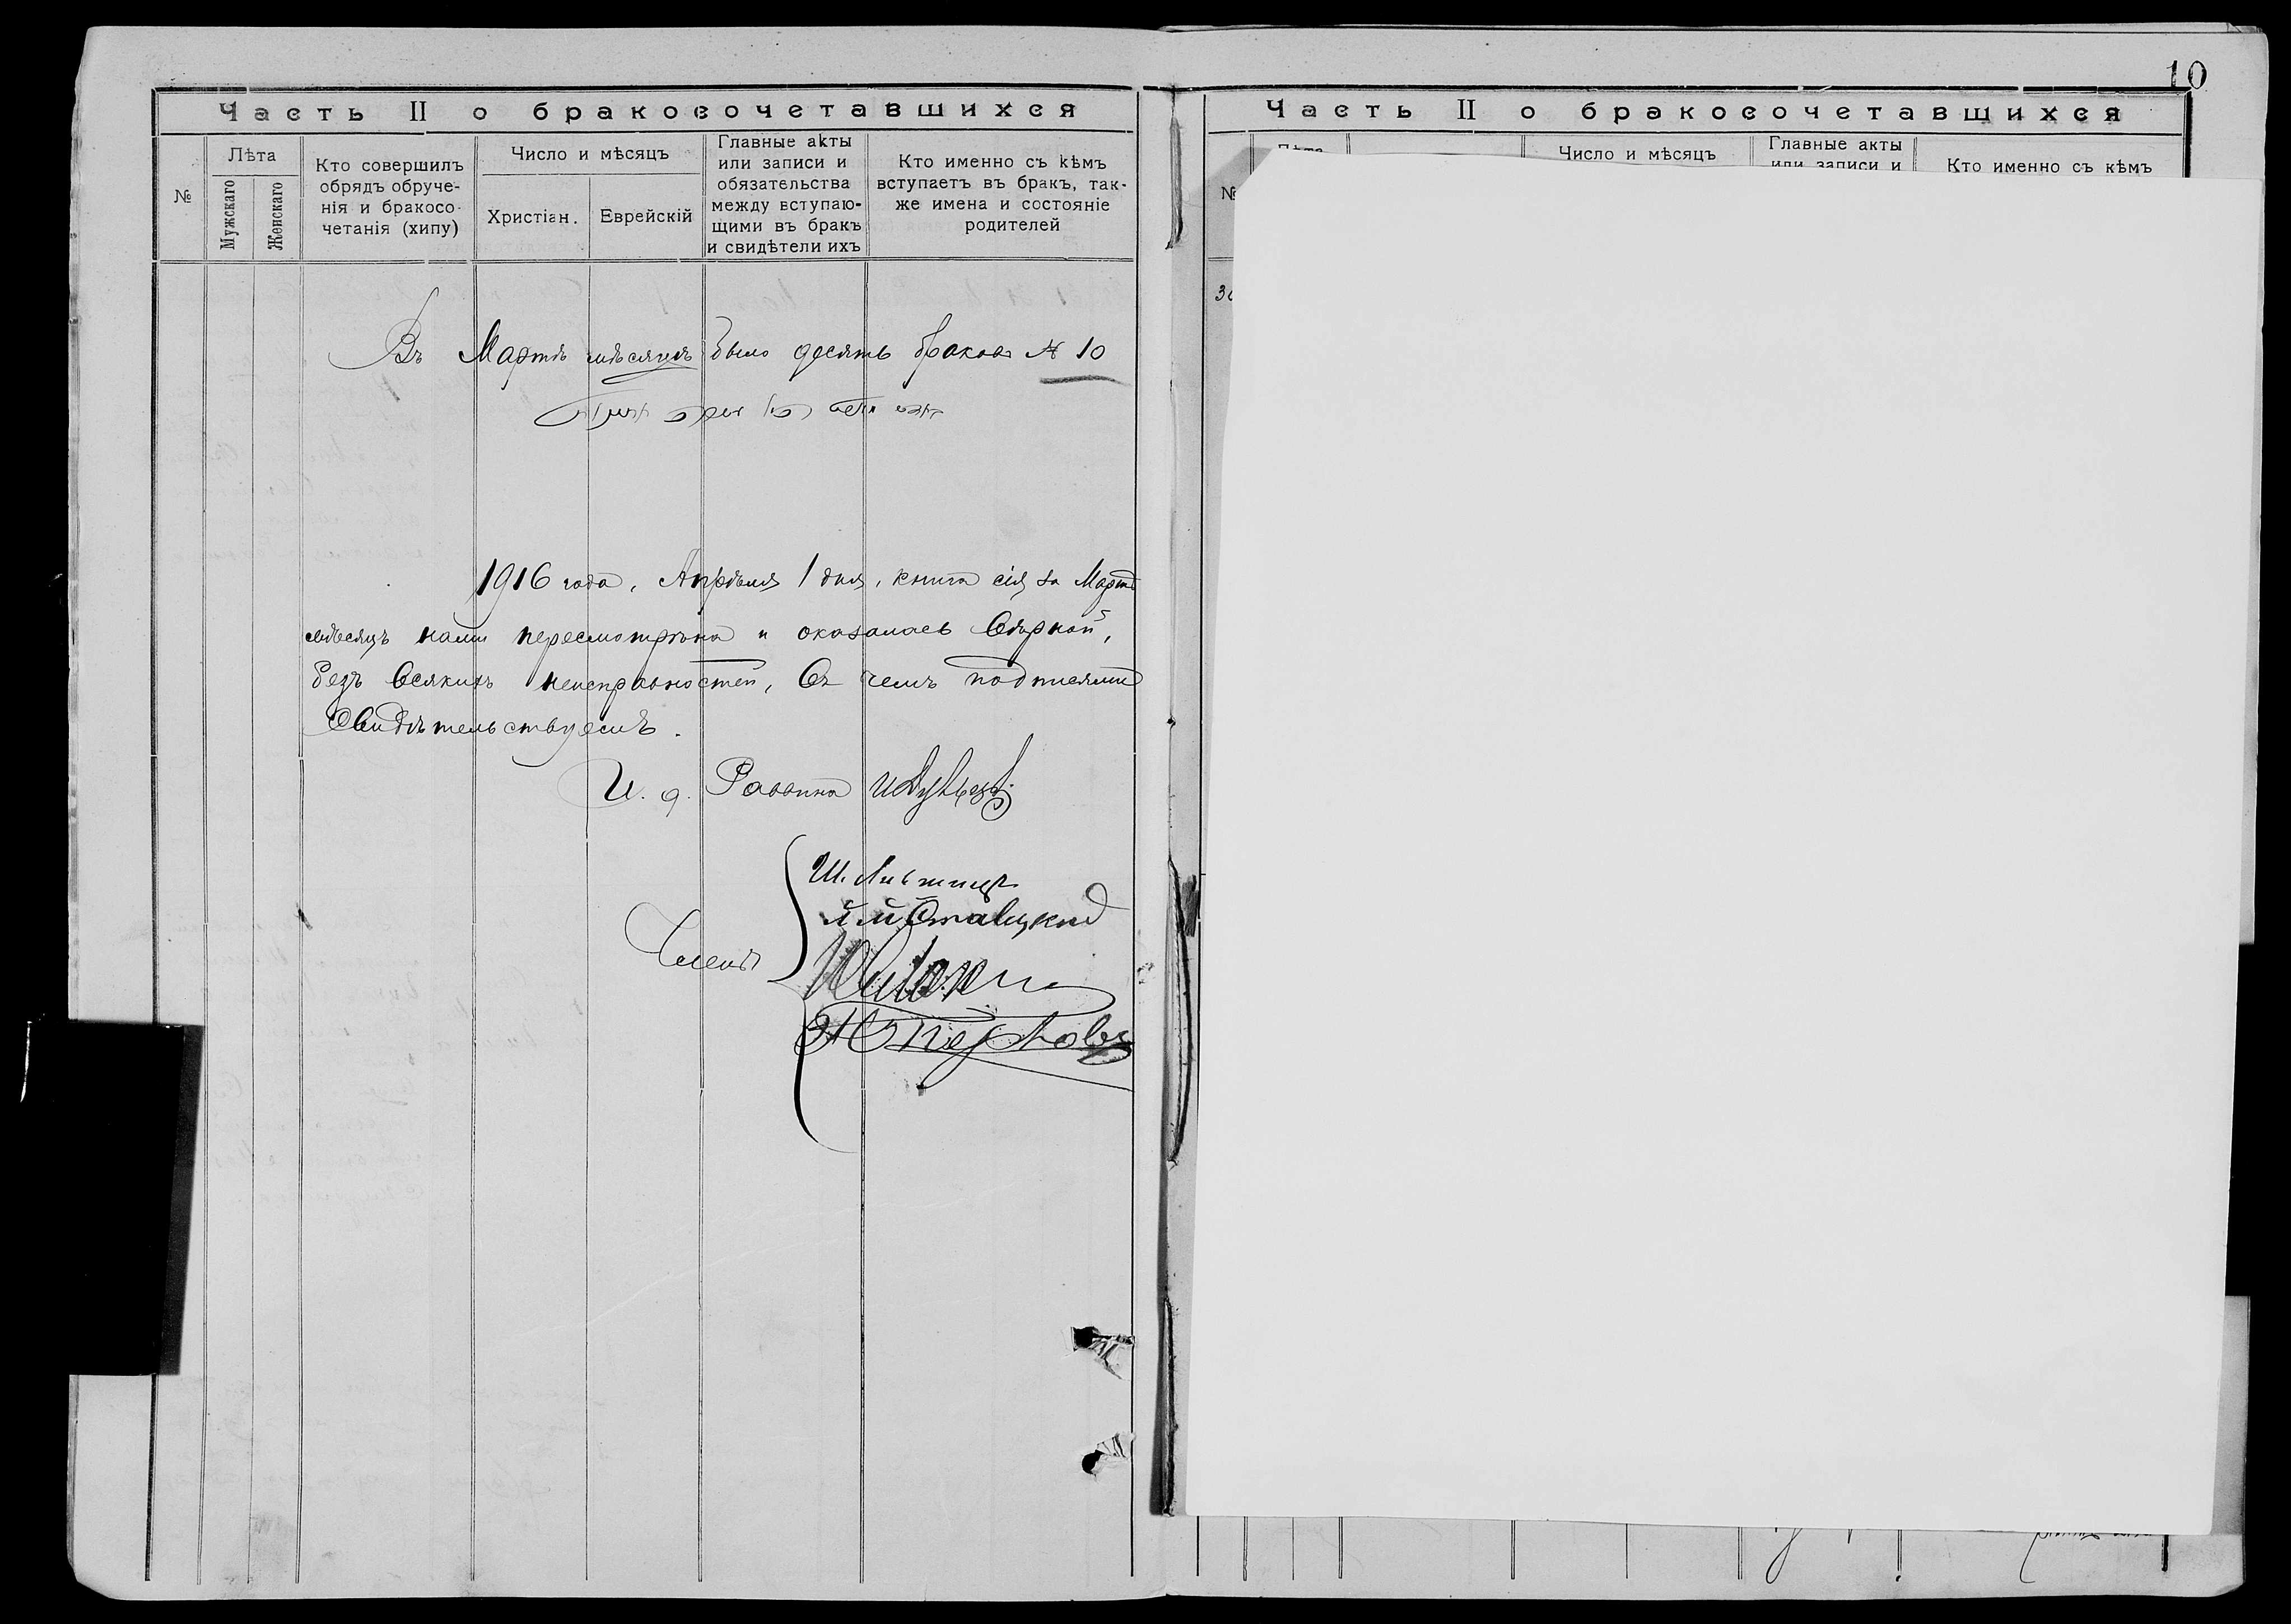 Часть II о бракосочетавшихся
№
Лѣта
Мужскаго
Женскаго
Кто совершилъ
обрядъ обруче-
нія и бракосо-
четанія (хипу)
Число и мѣсяцъ
Христіан.
Еврейскій
Главные акты
или записи и
обязательства
между вступаю-
щими въ бракъ
и свидѣтели ихъ
Кто именно съ кѣмъ
вступаетъ въ бракъ, так-
же имена и состояніе
родителей
Въ Мартѣ мѣсяцѣ было десять браковъ № 10
1916 года, Апрѣля 1 дня, книга сія за Мартъ
мѣсяцъ нами пересмотрѣна и оказалась вѣрной,
безъ всякихъ неисправностей, въ чемъ подписями
свидѣтельствуемъ.
И. д. Раввина
Члены
Ш. Лившицъ
Ставицкий
10
Часть II о бракосочетавшихся
№
Число и мѣсяцъ
Главные акты
или записи и
Кто именно съ кѣмъ